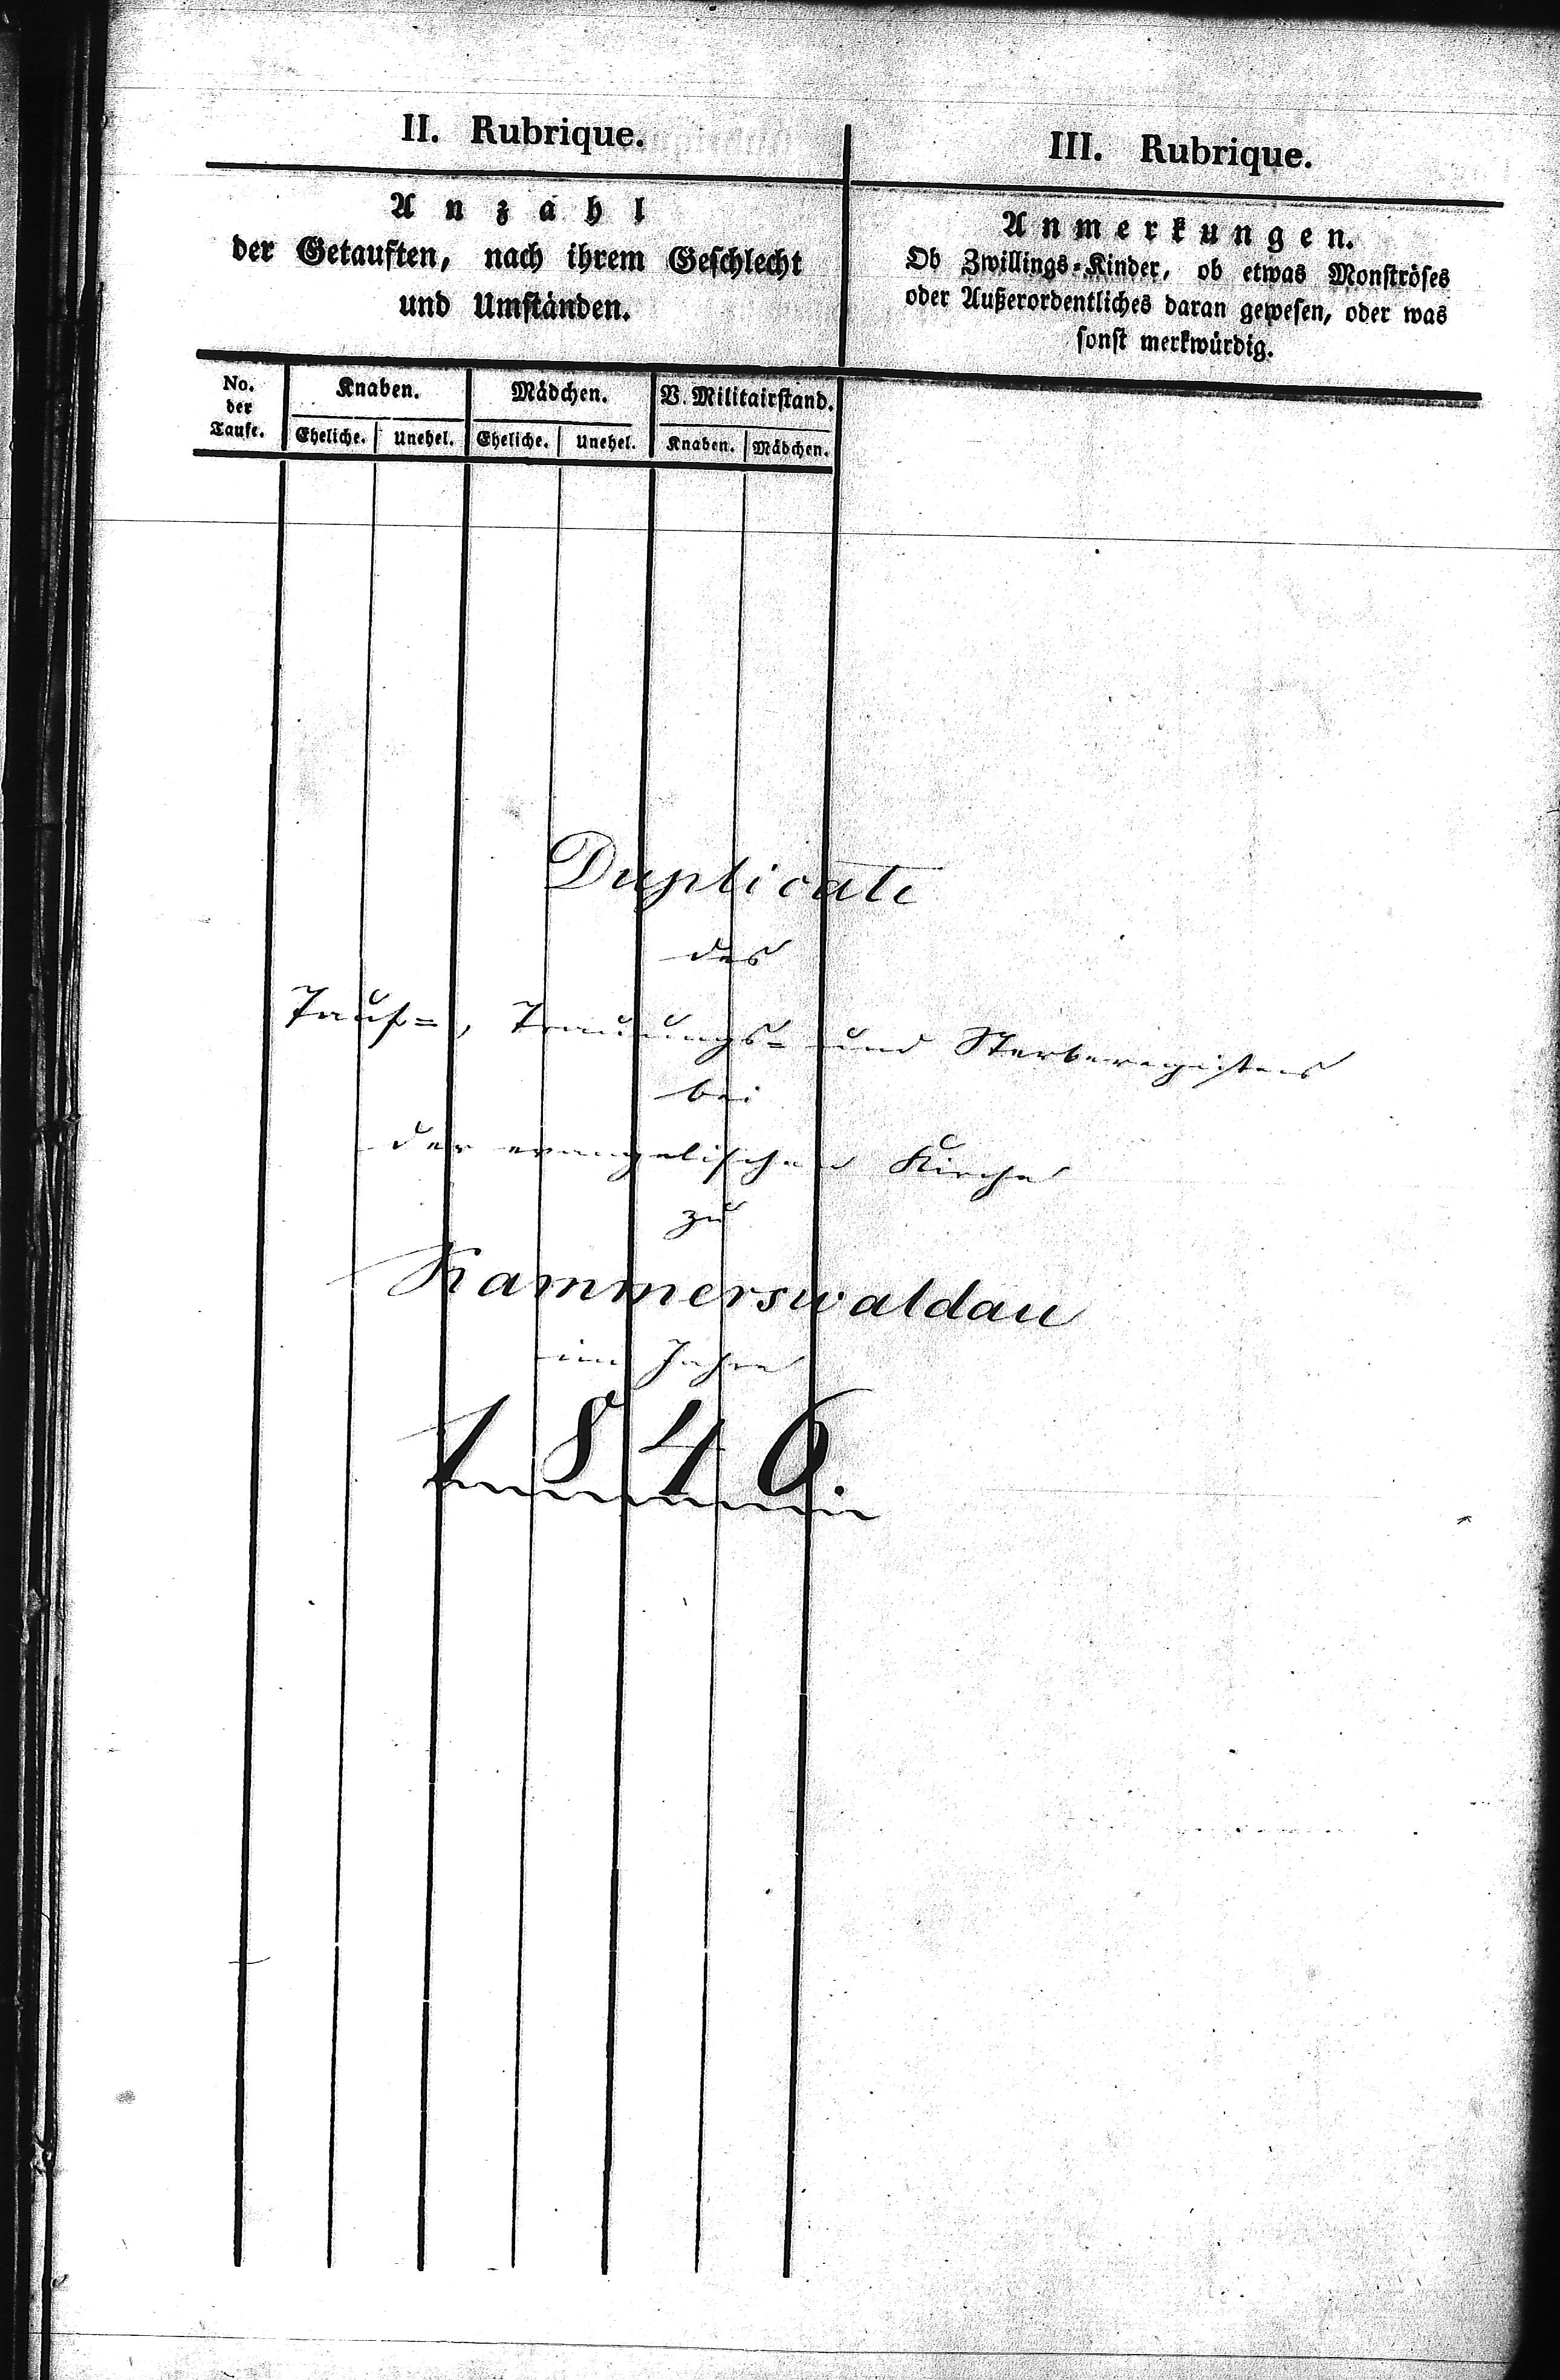 II. Rubrique.
Anzahl
der Getauften, nach ihrem Geschlecht
und Umständen.
III. Rubrique.
Anmerkungen.
Ob Zwillings-Kinder, ob etwas Monströses
oder Außerordentliches daran gewesen, oder was
sonst merkwürdig.
No.
der
Taufe.
Knaben.
Eheliche. Unehel.
Mädchen.
Eheliche. Unehel.
V. Militairstand.
Knaben. Mädchen.
Duplicate
des
Tauf=, Trauungs= und Sterberegisters
bei
der evangelischen Kirche
zu
Kammerswaldau
im Jahre
1846.